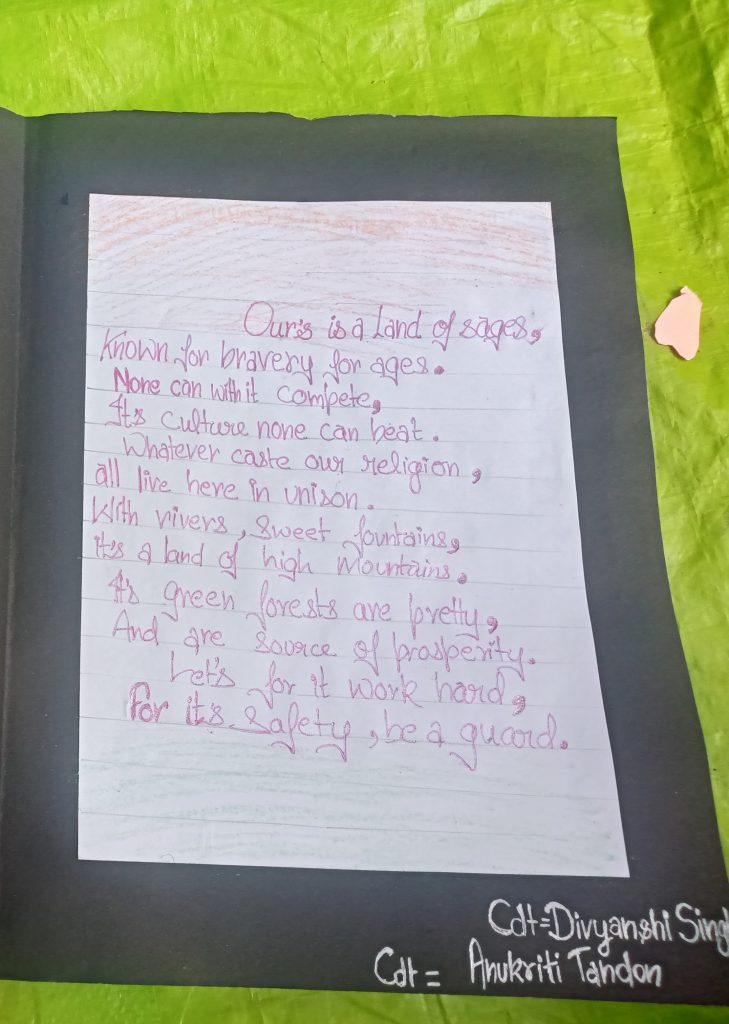 Our's is a land of sages,
Known for bravery for ages.
None can with it compete,
It's culture none can beat.
Whatever caste our religion,
all live here in unison.
With rivers, sweet fountains,
it's a land of high mountains.
It's green forests are pretty,
And are source of prosperity.
Let's for it work hard,
For it's safety, be a guard.
Cdt=Divyanshi Sing
Cdt= Anukriti Tandon